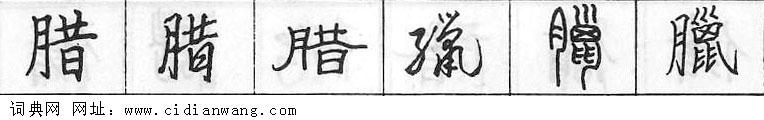 腊 腊 腊 臘 臘 臘
词典网 网址：www.cidianwang.com